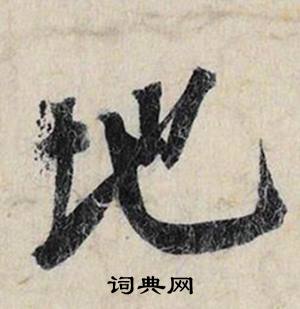 地
词典网